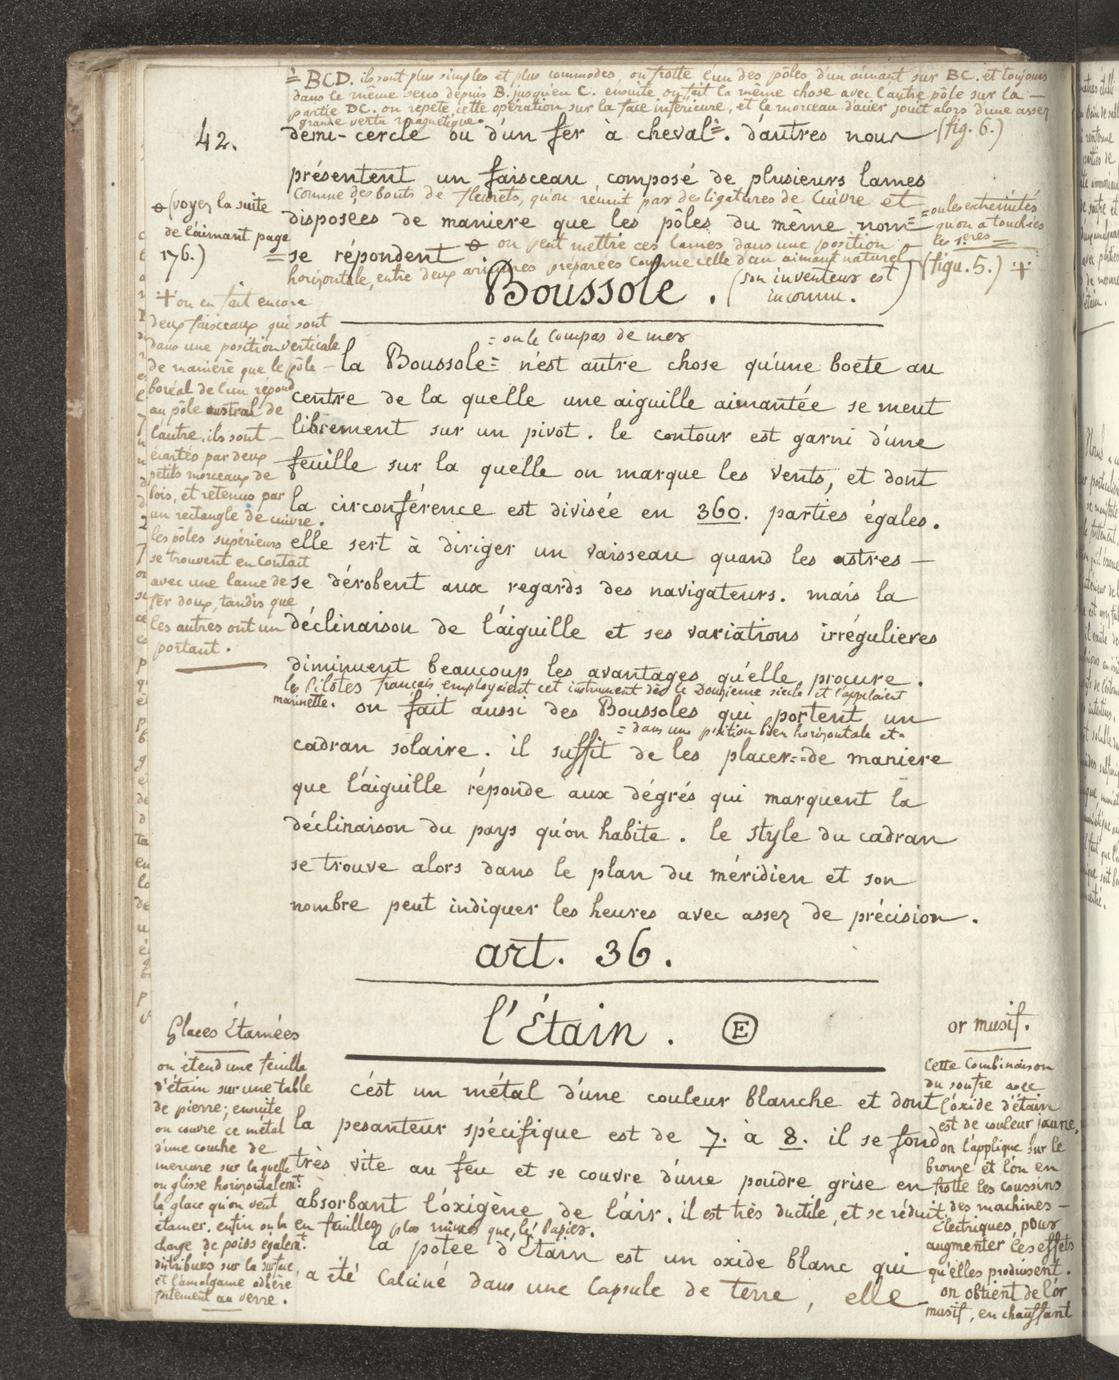 = BCD. ils sont plus simples et plus commodes, on frotte l'un des pôles d'un aimant sur BC. et toujours
dans le même sens depuis B. jusqu'en C. ensuite on fait la même chose avec l'autre pôle sur la —
partie DC. on repete cette opération sur la face inférieure, et le morceau d'acier jouit alors d'une assez
grande vertu magnétique.
42.
demi-cercle ou d'un fer à cheval=. d'autres nous
(fig. 6.)
présentent un faisceau composé de plusieurs lames
comme des bouts de fleurets, qu'on réunit par des ligatures de cuivre et
disposées de maniere que les pôles du même nom=
= ou les extrémités
qu'on a touchées
les 1eres =
se répondent
on peut mettre ces lames dans une position
horizontale, entre deux armures préparées comme celle d'un aimant naturel (figu. 5.) +
(voyez la suite
de l'aimant page
176.)
Boussole . (son inventeur est
inconnu.)
+ on en fait encore
deux faisceaux qui sont
dans une position verticale
de manière que le pôle —
boréal de l'un répond
au pôle austral de
l'autre. ils sont —
écartés par deux
petits morceaux de
bois, et retenus par
un rectangle de cuivre.
les pôles supérieurs
se trouvent en contact
avec une lame de
fer doux, tandis que
les autres ont un
portant.
= ou le compas de mer
la Boussole= n'est autre chose qu'une boete au
centre de la quelle une aiguille aimantée se meut
librement sur un pivot. le contour est garni d'une
feuille sur la quelle on marque les vents, et dont
la circonférence est divisée en 360. parties égales.
elle sert à diriger un vaisseau quand les astres —
se dérobent aux regards des navigateurs. mais la
déclinaison de l'aiguille et ses variations irrégulieres
diminuent beaucoup les avantages qu'elle procure.
les Pilotes français employaient cet instrument dès le Douzieme siecle et l'appelaient
marinette. on fait aussi des Boussoles qui portent un
= dans une position bien horizontale et=
cadran solaire. il suffit de les placer= de maniere
que l'aiguille réponde aux dégrés qui marquent la
déclinaison du pays qu'on habite. le style du cadran
se trouve alors dans le plan du méridien et son
nombre peut indiquer les heures avec assez de précision.
art. 36.
l'Étain. E
Glaces Étamées
on étend une feuille
d'étain sur une table
de pierre; ensuite
on couvre ce métal
d'une couche de
mercure sur la quelle
on glisse horizontalemt.
la glace qu'on veut
étamer. enfin on la
charge de poids égalemt.
distribués sur la surface,
et l'amalgame adhère
fortement au verre.
c'est un métal d'une couleur blanche et dont
la pesanteur spécifique est de 7. à 8. il se fond
très vite au feu et se couvre d'une poudre grise en
absorbant l'oxigène de l'air. il est très ductile, et se réduit
en feuilles plus minces que le papier.
la potée d'Étain est un oxide blanc qui
a été calciné dans une capsule de terre, elle
or musif.
Cette combinaison
du soufre avec
l'oxide d'étain
est de couleur jaune,
on l'applique sur le
bronze et l'on en
frotte les coussins
des machines —
Électriques, pour
augmenter les effets
qu'elles produisent.
on obtient de l'or
musif, en chauffant